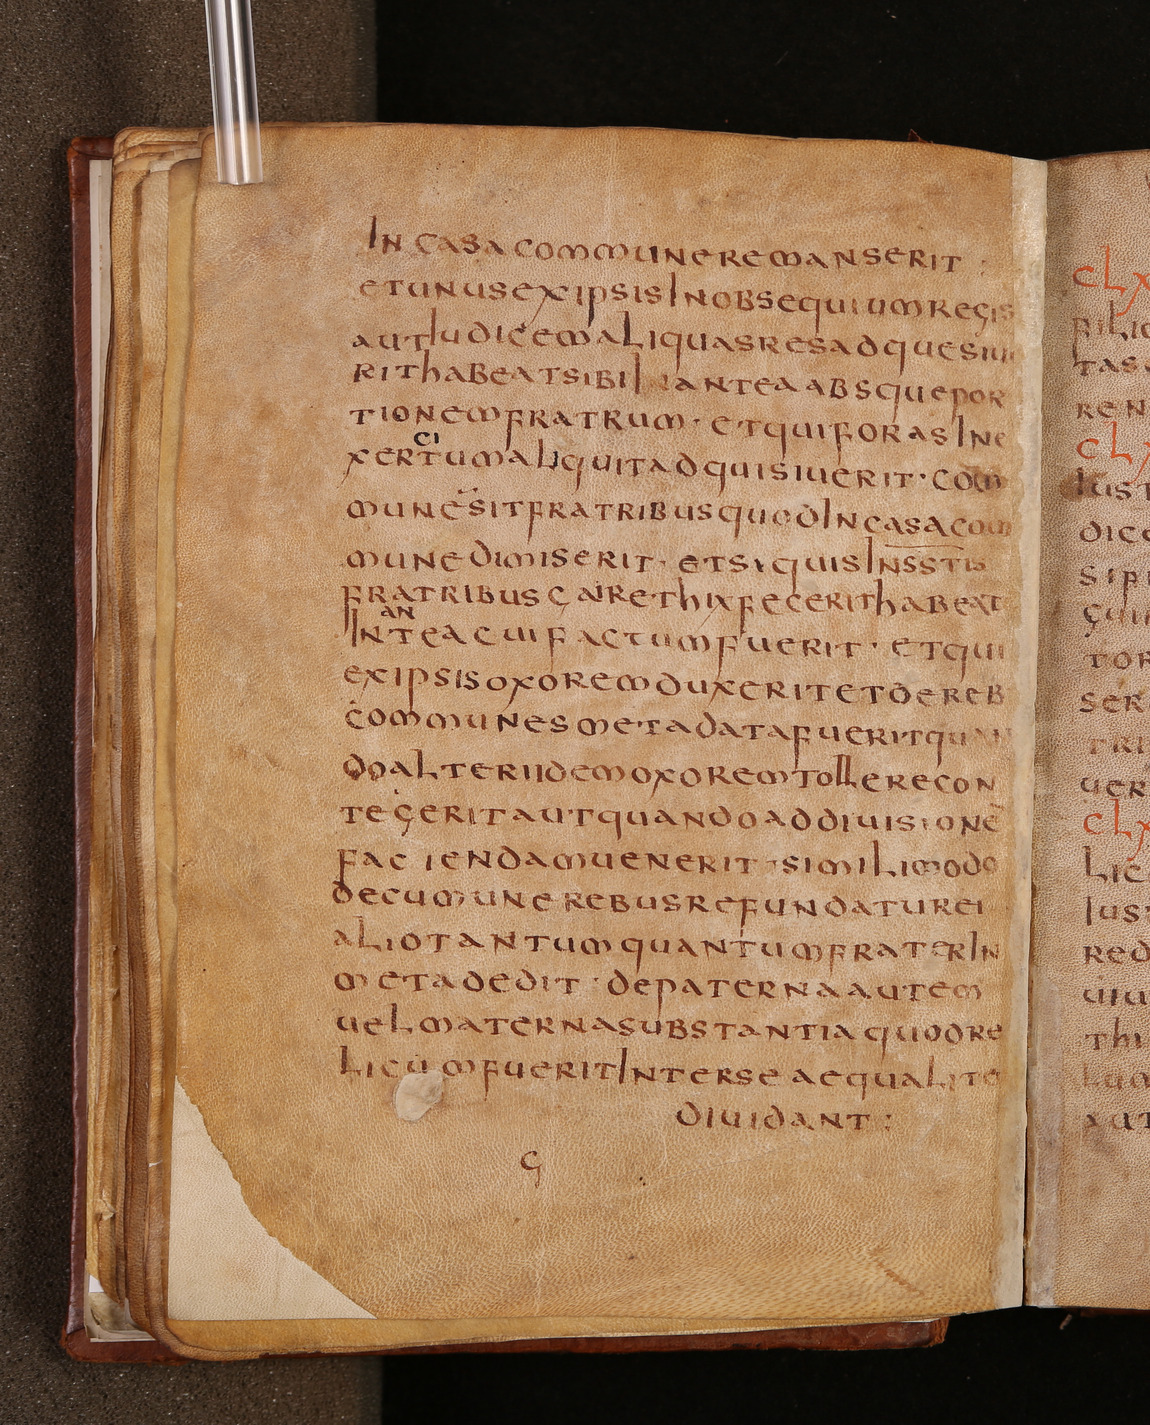 IN CASA COMMUNE REMANSERIT :
ET UNUS EX IPSIS IN OBSEQUIUM REGIS
AUT IUDICEM ALIQUAS RES ADQUESIUE
RIT HABEAT SIBI IN ANTEA ABSQUE POR
TIONEM FRATRUM · ET QUI FORAS IN E
XERCITUM ALIQUIT ADQUISIUERIT · COM
MUNE SIT FRATRIBUS QUOD IN CASA COM
MUNE DIMISERIT · ET SI QUIS IN SSTIS
FRATRIBUS GAIRETHIX FECERIT HABEAT
IN ANTEA CUI FACTUM FUERIT · ET QUI
EX IPSIS OXOREM DUXERIT ET DE REB
COMMUNES META DATA FUERIT QUAN
DO ALTERI IDEM OXOREM TOLLERE CON
TEGERIT AUT QUANDO AD DIUISIONE
FACIENDAM UENERIT · SIMILI MODO
DE CUMUNE REBUS REFUNDATUR EI
ALIO TANTUM QUANTUM FRATER IN
META DEDIT · DE PATERNA AUTEM
UEL MATERNA SUBSTANTIA QUOD RE
LICUM FUERIT INTER SE AEQUALITE
DIUIDANT :
G
CLX
TAS
REN
CLX
IUST
DICE
TOR
SER
TRI
UER
CLX
LIC
IUS
RED
UIU
THI
LUM
AUT